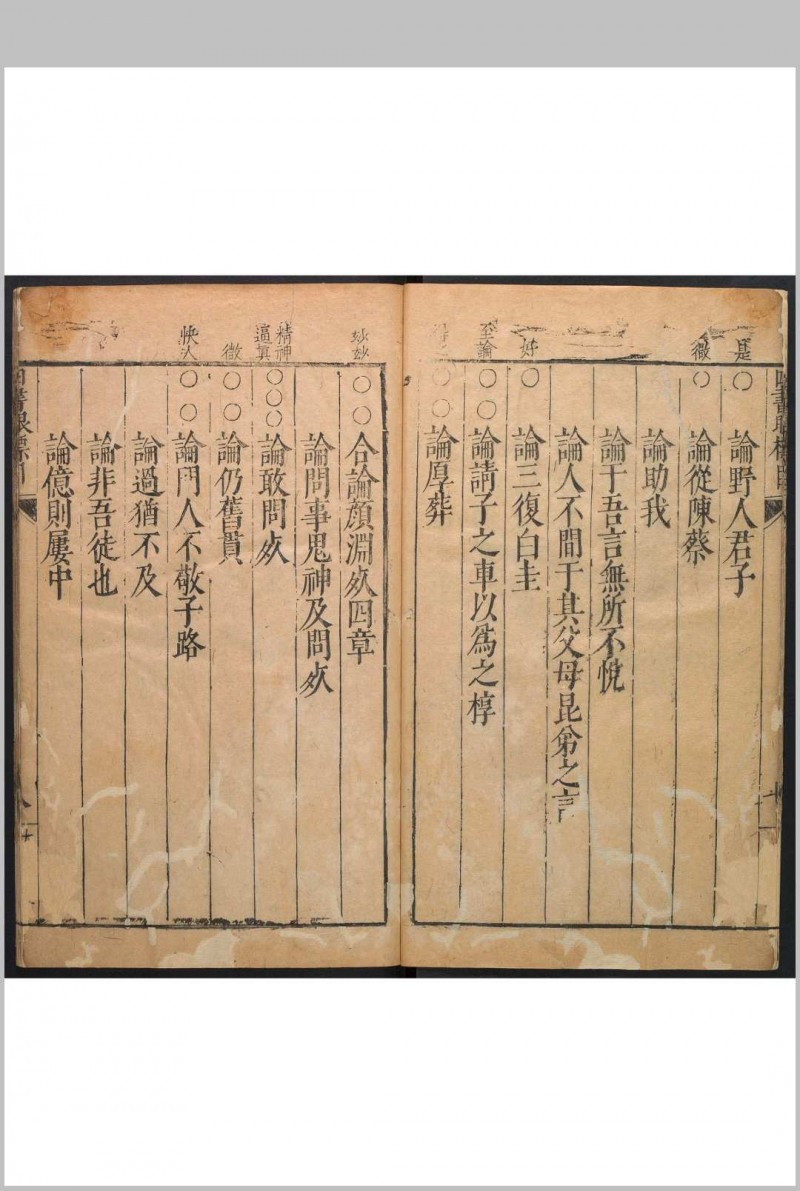 是
○論野人君子
微
○論從陳蔡
論助我
論于吾言無所不悅
論人不間于其父母昆弟之言
好
○論三復白圭
至論
○○論請子之車以爲之椁
○○論厚葬
妙妙
○○合論顏淵死四章
論問事鬼神及問死
精神
逼真
○○○論敢問死
微
○○論仍舊貫
快人
○○論門人不敬子路
論過猶不及
論非吾徒也
論億則屢中